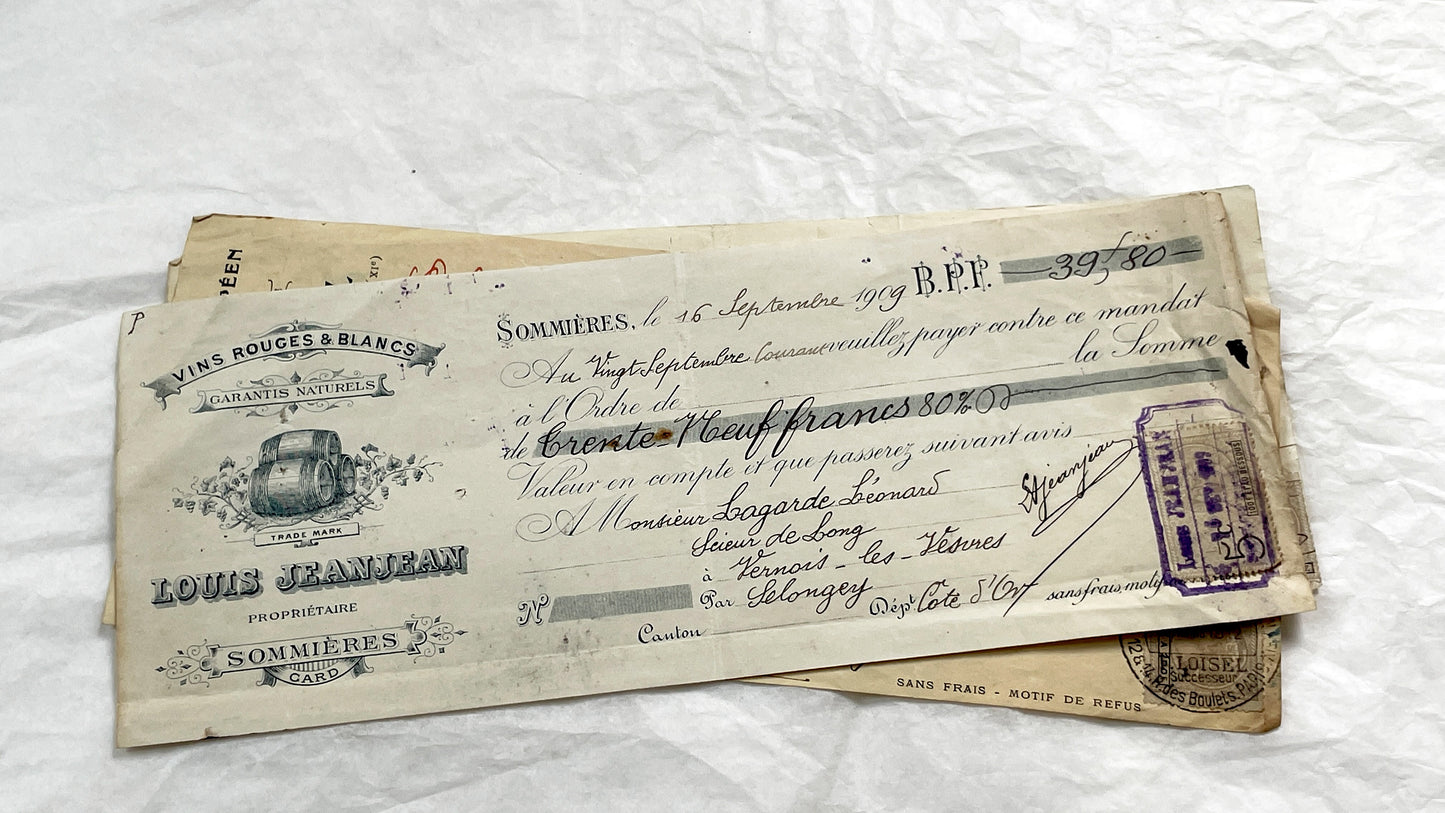 P
VINS ROUGES & BLANCS
GARANTIS NATURELS
TRADE MARK
LOUIS JEANJEAN
PROPRIÉTAIRE
SOMMIÈRES
GARD
SOMMIÈRES, le 16 Septembre 1909 B.P.F. 39f,80
Au Vingt Septembre Courant veuillez payer contre ce mandat
à l'Ordre de la Somme
de Trente-Neuf francs 80%
Valeur en compte et que passerez suivant avis
A Monsieur Lagarde Léonard
Scieur de Long
à Vernois-les-Vesvres
Par Selongey
N°
Canton
Dépt Cote d'Or
sans frais, motif
LOUIS JEANJEAN
5
100F ET AU DESSOUS
PÉEN
XIe)
SANS FRAIS - MOTIF DE REFUS
LOISEL
Successeur
12 & 14, R. des Boulets, PARIS